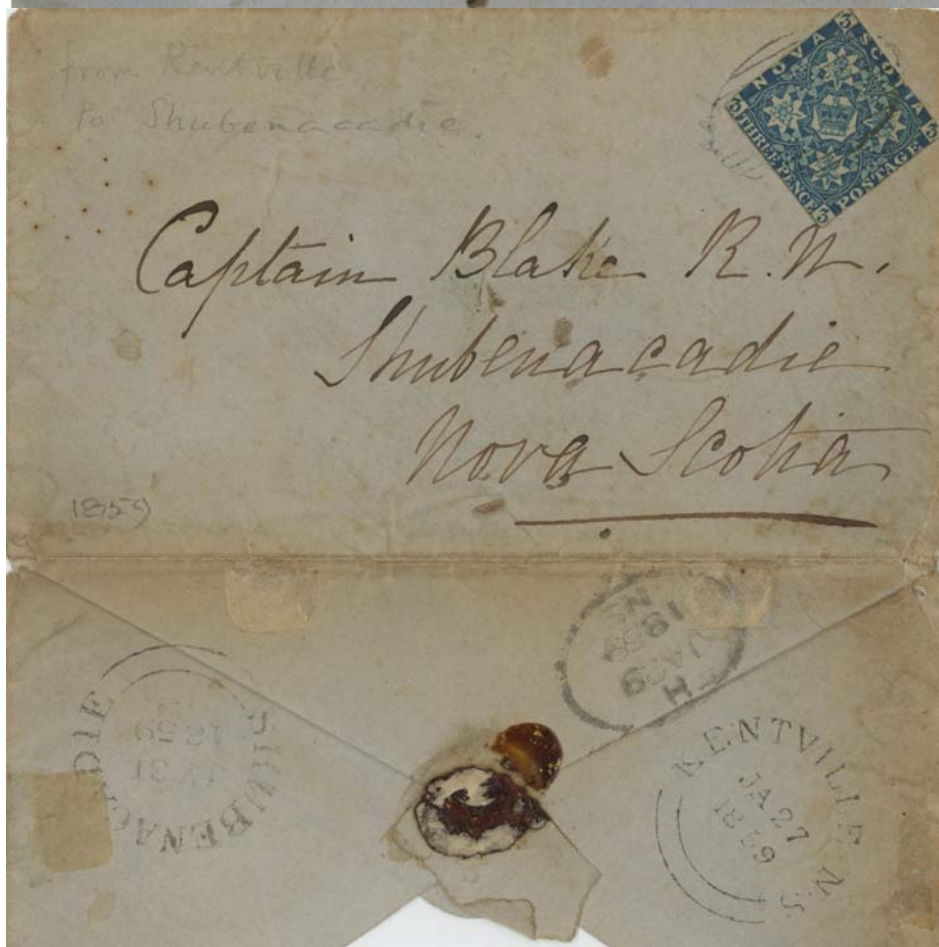 from Kentville
to Shubenacadie.
3 NOVA 3 SCOTIA 3
THREE PENCE 3 POSTAGE
Captain Blake R. N.
Shubenacadie
Nova Scotia
1859
H
JA
1859
N
SHUBENACADIE
31
1859
KENTVILLE N.S
JA 27
1859